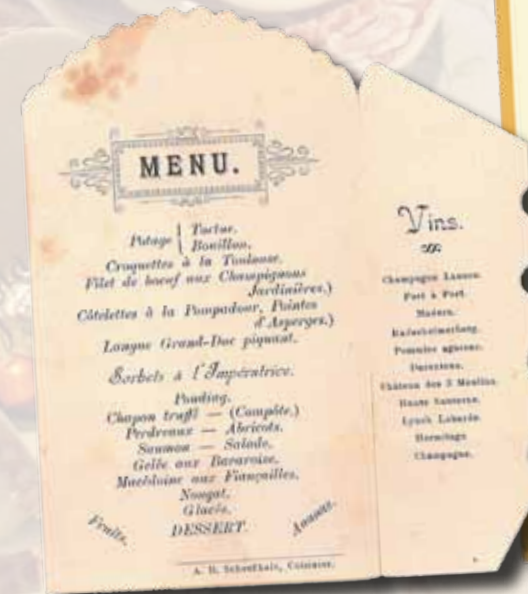 MENU.
Potage { Tortue.
Bouillon.
Croquettes à la Toulouse.
Filet de boeuf aux Champignons
Jardinières.)
Côtelettes à la Pompadour, Pointes
d'Asperges.)
Langue Grand-Duc piquant.
Sorbets à l'Impératrice.
Pouding.
Chapon truffé — (Compôte.)
Perdreaux — Abricots.
Saumon — Salade.
Gelée aux Bavaroise.
Macédoine aux Fiançailles.
Nougat.
Glacés.
Fruits. DESSERT. Ananas.
A. B. Cuisinier.
Vins.
Champagne Lanson.
Port à Port.
Madera.
Rudesheimerberg.
Pommies
Château des 3 Moulins.
Haute Sauterne.
Lynch
Hermitage
Champagne.